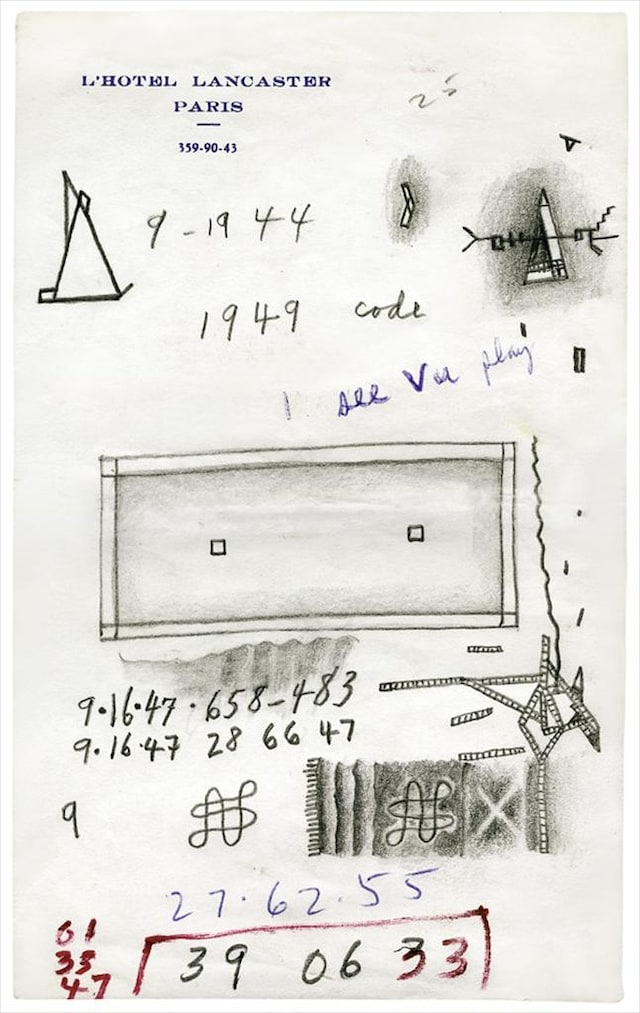 L'HOTEL LANCASTER
PARIS
359-90-43
25
9-1944
1949 code
I see Val play
9·16·47·658-483
9·16·47 28 66 47
9
27·62·55
01
33
47
39 06 33